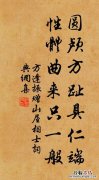 圆颅方趾具仁端
性情曲来只一般
方逢振赠山居相士詞
典網集